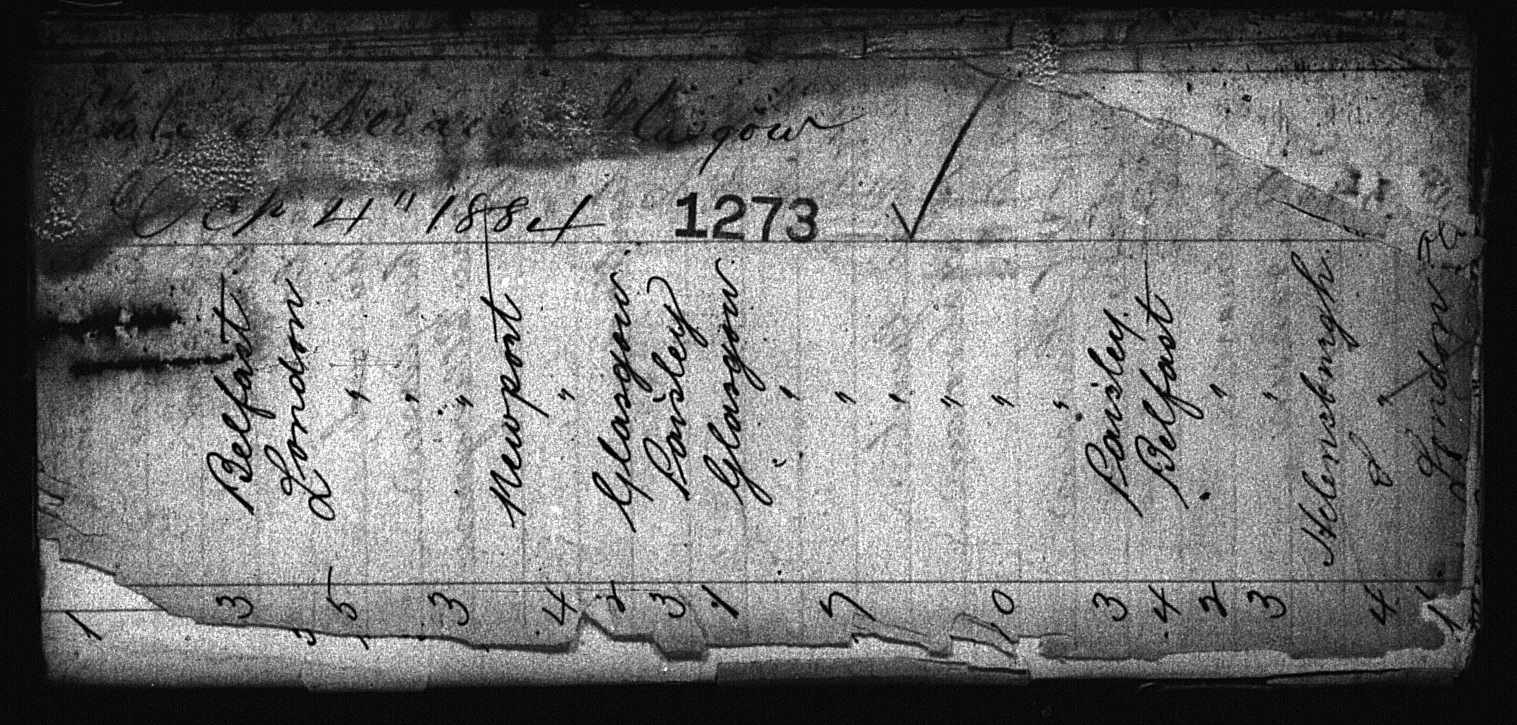 Glasgow
Oct 4" 1884 1273 ✓
Belfast 3
London
" 5
"
" 3
Newport
" 4
Glasgow 2
Paisley 3
Glasgow 1
"
" 7
"
"
" 0
"
Paisley 3
Belfast 4
" 2
" 3
Helensburgh.
" 4
London 1